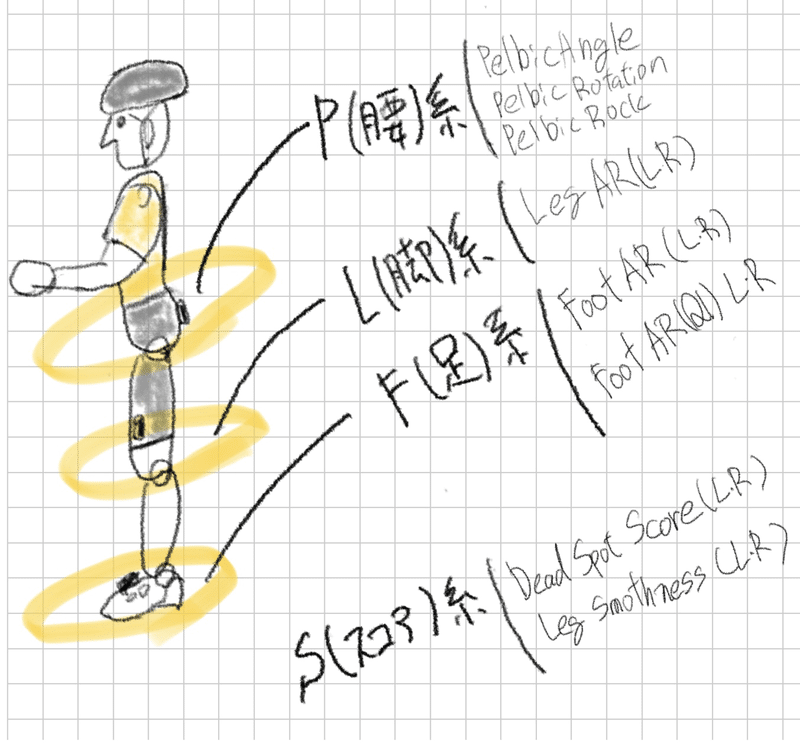 P(腰)系
PelbicAngle
Pelbic Rotation
Pelbic Rock
L(脚)系
Leg AR(L.R)
F(足)系
Foot AR(L.R)
Foot AR(Q1) L.R
S(スコア)系
Dead Spot Score(L.R)
Leg Smothness(L.R)